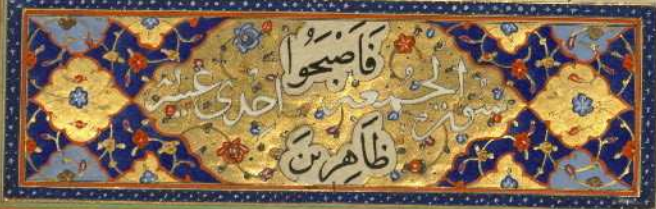 فَأَصْبَحُوا
سورة الجمعة احدى عشر
ظَاهِرِينَ